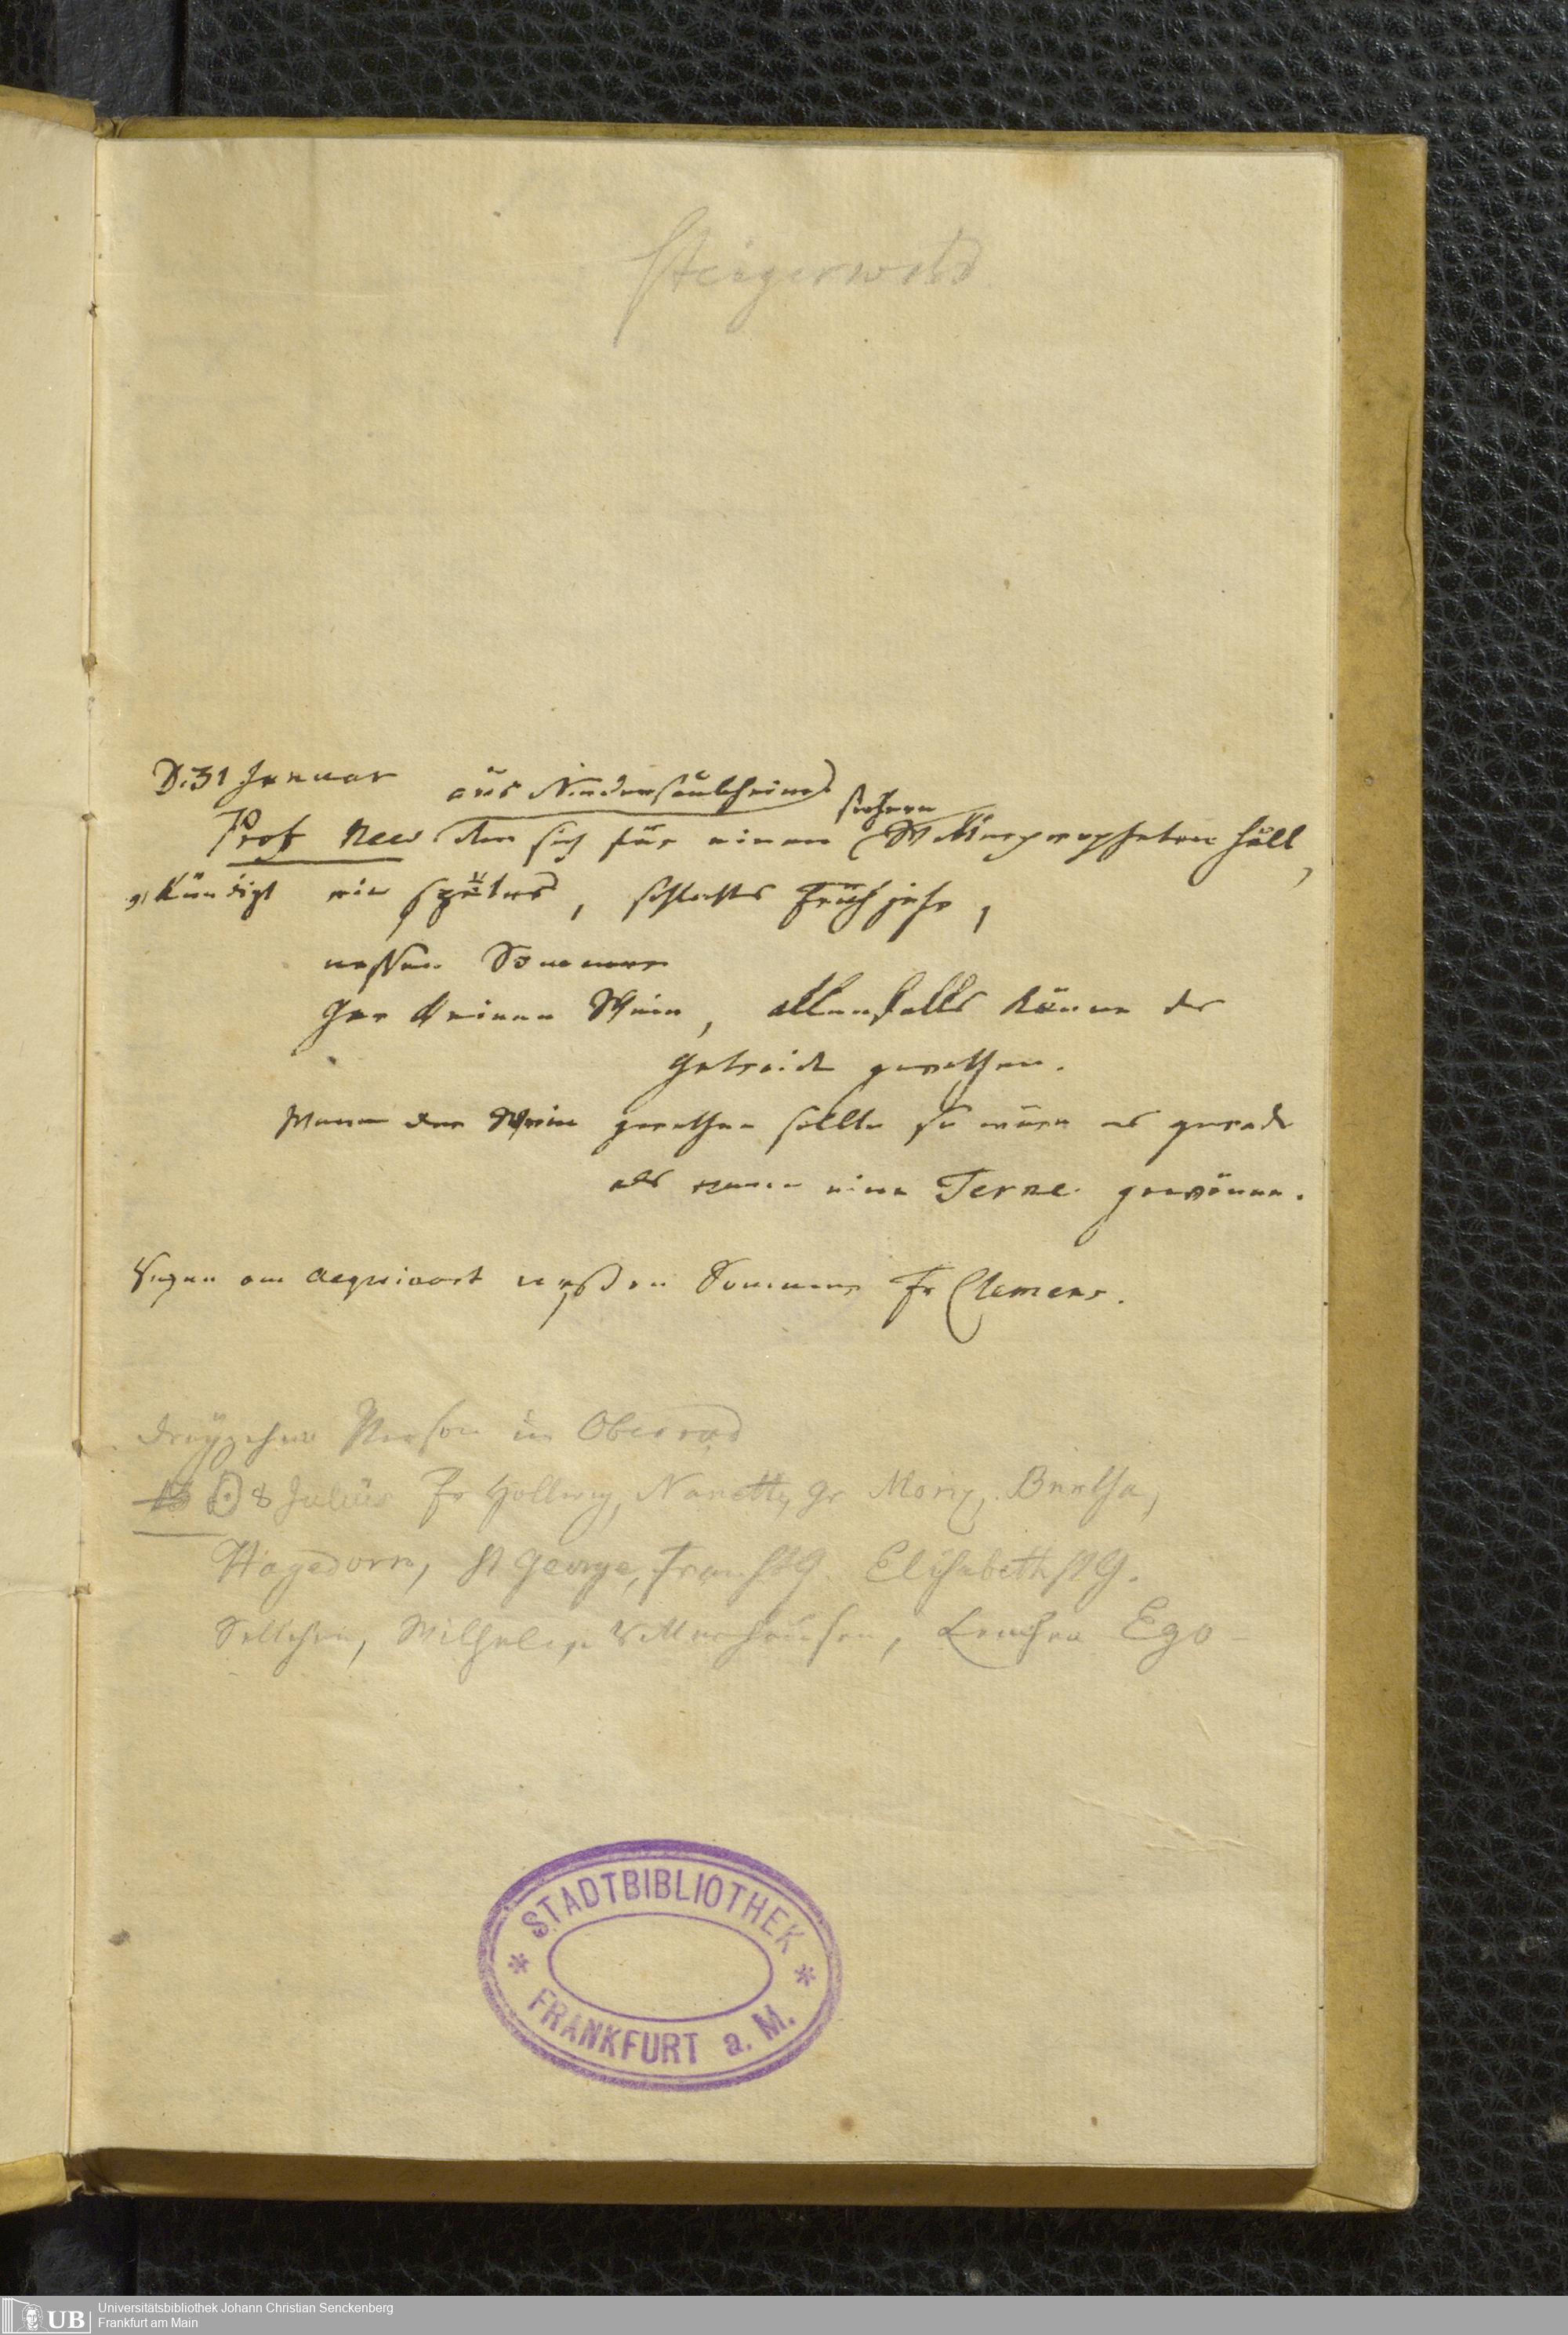 Steigerwald
D. 31 Januar aus Niedersaulheim
sichern
Prof Neeb der sich für einen Witterungspropheten hält,
kündigt ein spätes, schlechtes Frühjahr,
nassen Sommer
Gar keinen Wein, allenfalls könne das
Getraide gerathen.
Wenn der Wein gerathen sollte so wäre es gerade
als wenn eine Terne gewönne.
Regen am Aequinoct nassen Sommer Fr Clemens.
Dreyzehn Person in Oberrad
13 ☉ 8 Julius Fr Hollweg, Nanette, Gr Moriz, Bertha,
Hagedorn, St George, Frau St G. Elisabeth St G.
Wilhelm, Lenchen Ego
STADTBIBLIOTHEK
FRANKFURT a. M.
UB Universitätsbibliothek Johann Christian Senckenberg
Frankfurt am Main